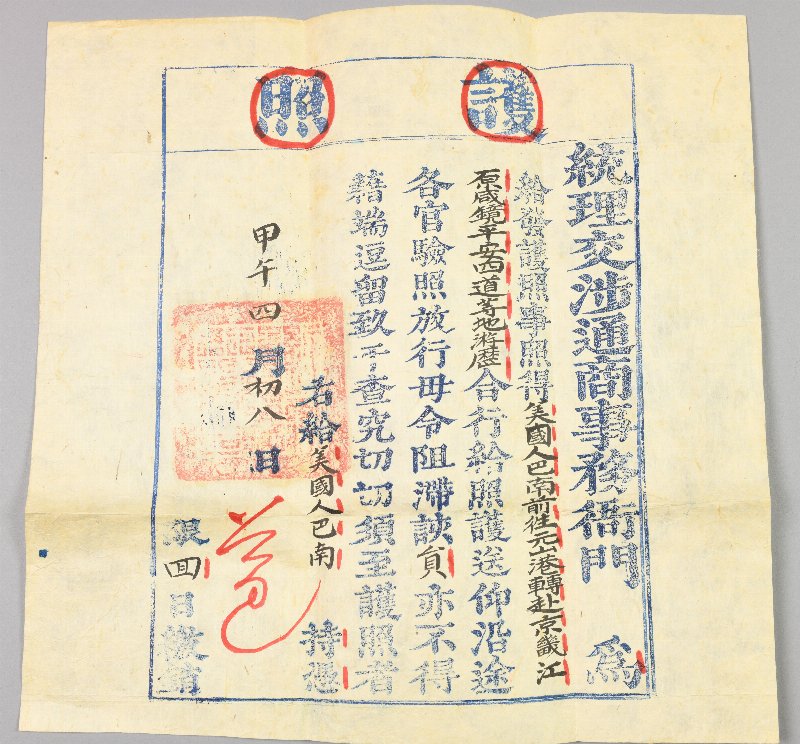 護照
統理交涉通商事務衙門 爲
給發護照事照得美國人巴南前往元山港轉赴京畿江
原咸鏡平安四道等地游歷合行給照護送仰沿途
各官驗照放行毋令阻滯該員亦不得
藉端逗留致干查究切切須至護照者
右給美國人巴南 持憑
甲午四月初八日
限 回日繳銷